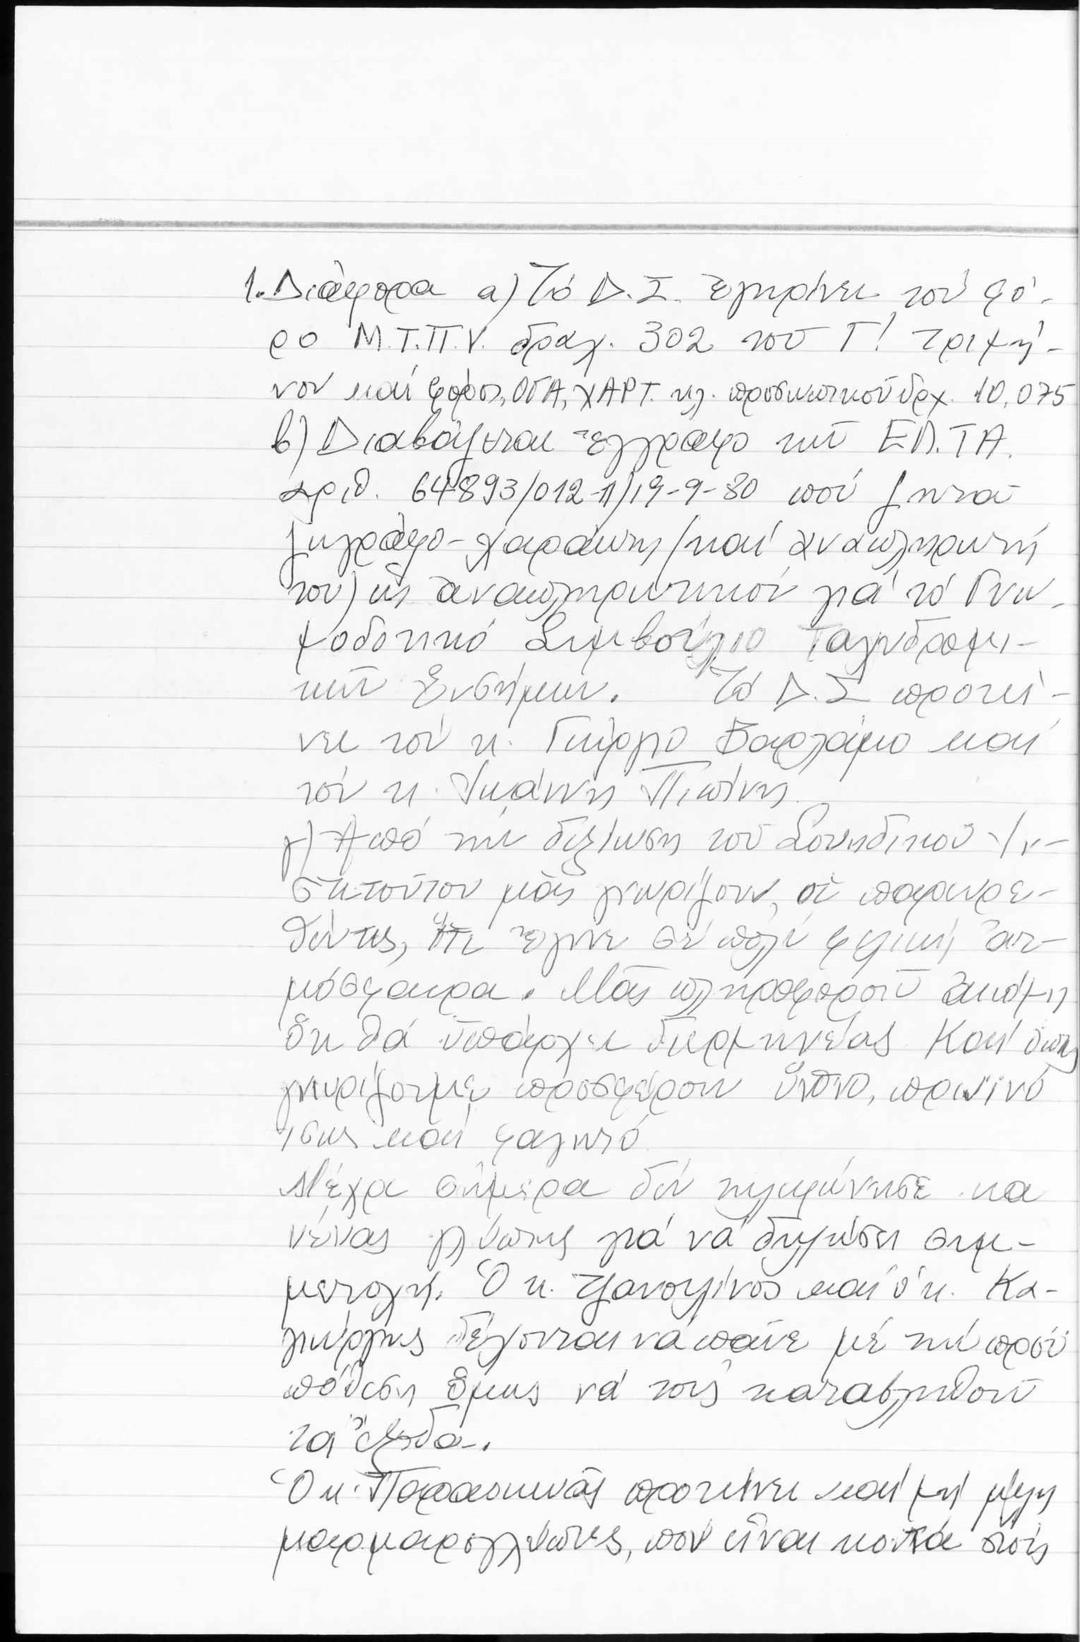 1. Διάφορα α) Τό Δ.Σ. ἐγκρίνει τόν φό-
ρο Μ.Τ.Π.Υ. δραχ. 302 τοῦ Γ! τριμή-
νου καί φόρου, ΟΓΑ, ΧΑΡΤ. κλ. προσωπικοῦ δρχ. 10,075
β) Διαβάζεται ἔγγραφο τῶν ΕΛ.ΤΑ.
ἀριθ. 64893/012-Π/19-9-80 πού ζητᾶ
ζωγράφο-χαράκτη (καί ἀναπληρωτή
του) ὡς ἀναπληρωτικοί γιά τό Γνω-
μοδοτικό Συμβούλιο Ταχυδρομι-
κῶν Ἐνσήμων. Τό Δ.Σ προτεί-
νει τόν κ. Γιῶργο Βαρλάμο και
τόν κ. Ἰωάννη
γ) Ἀπό τήν δεξίωση τοῦ Σουηδικοῦ Ἰν-
στιτούτου μᾶς γνωρίζουν, οἱ παρευρε-
θέντες, ὅτι ἔγινε σέ πολύ φιλική ἀτ-
μόσφαιρα. Μᾶς πληροφοροῦν ἀκόμη
ὅτι θά ὑπάρχει διερμηνέας Καί ὅπως
γνωρίζουμε προσφέρουν ὕπνο, πρωϊνό
ἴσως και φαγητό
Μέχρι σήμερα δέν τηλεφώνησε κα
νένας γλύπτης γιά νά δηλώσει συμ-
μετοχή. Ὁ κ. Τζανουλίνος και ὁ κ. Κα-
λιώργης δέχονται νά πᾶνε μέ τήν προϋ
πόθεση ὅμως νά τούς καταβληθοῦν
τά ἔξοδα.
Ὁ κ. Παρασκευᾶς προτείνει και μή μέλη
μαρμαρογλύπτες, πού εἶναι κοντά στούς